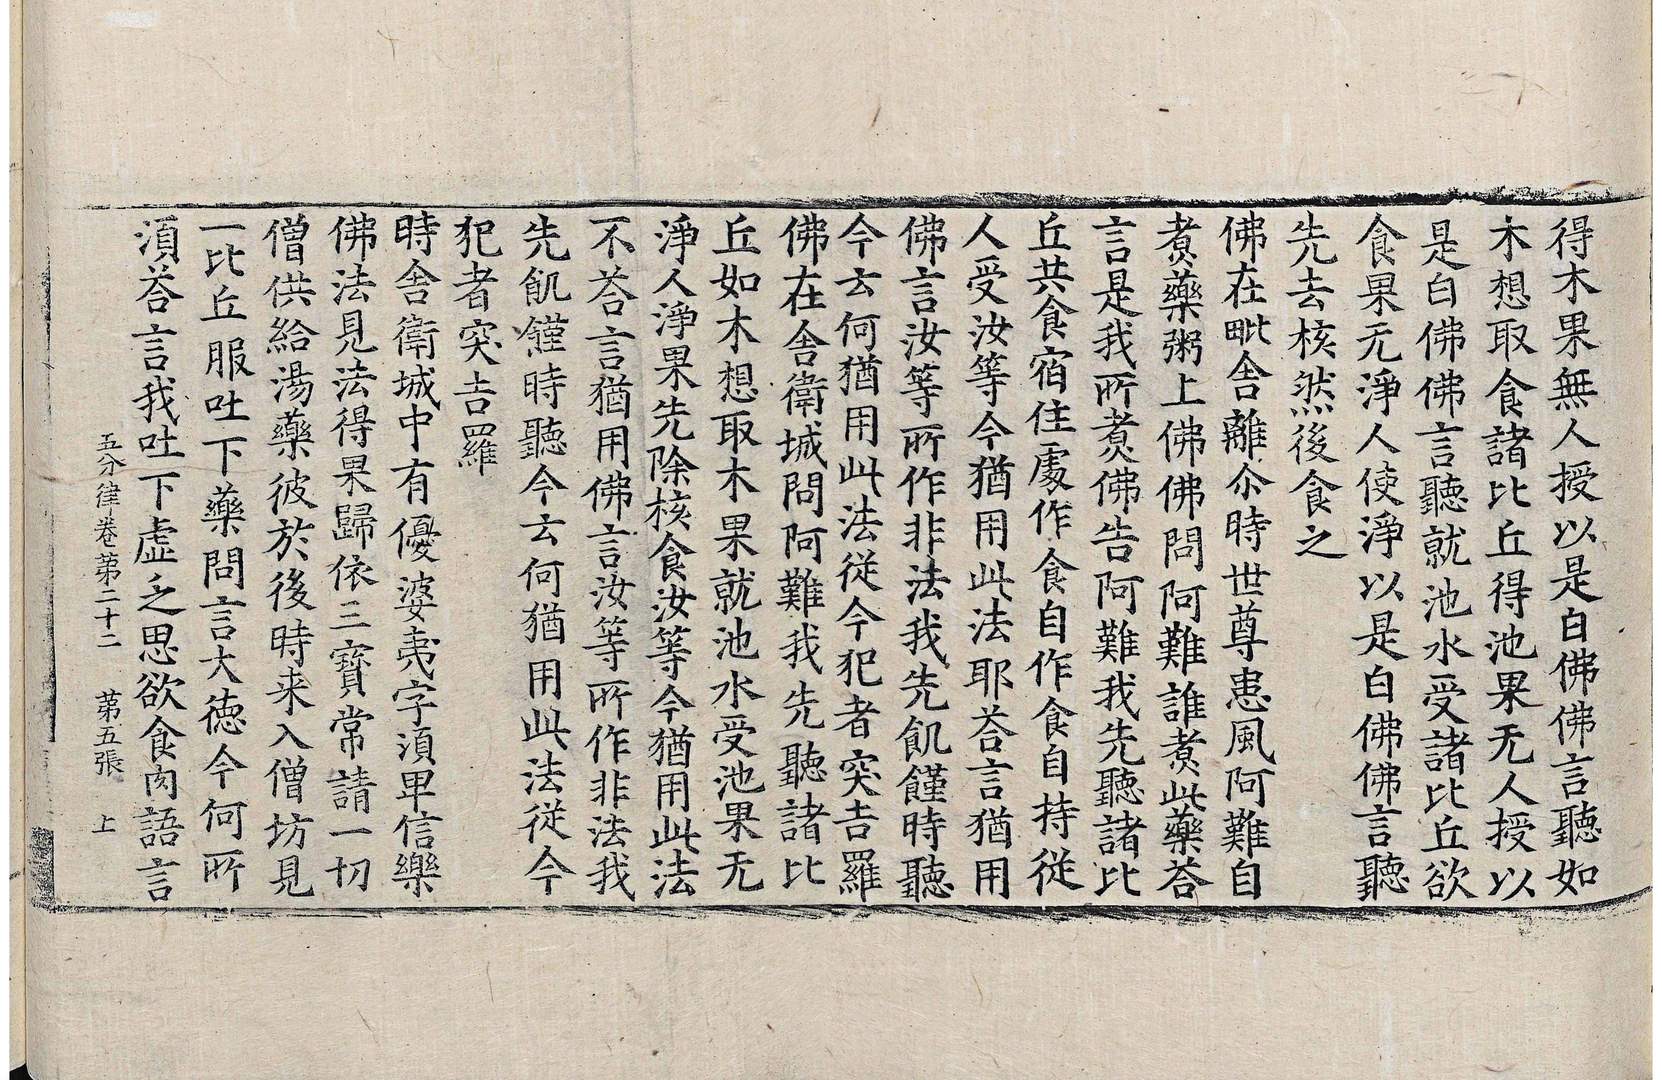 得木果無人授以是白佛佛言聽如
木想取食諸比丘得池果无人授以
是白佛佛言聽就池水受諸比丘欲
食果无淨人使淨以是白佛佛言聽
先去核然後食之
佛在毗舍離尒時世尊患風阿難自
煑藥粥上佛佛問阿難誰煑此藥荅
言是我所煑佛告阿難我先聽諸比
丘共食宿住處作食自作食自持從
人受汝等今猶用此法耶荅言猶用
佛言汝等所作非法我先飢饉時聽
今云何猶用此法從今犯者突吉羅
佛在舍衛城問阿難我先聽諸比
丘如木想取木果就池水受池果无
淨人淨果先除核食汝等今猶用此法
不荅言猶用佛言汝等所作非法我
先飢饉時聽今云何猶用此法從今
犯者突吉羅
時舍衛城中有優婆夷字湏卑信樂
佛法見法得果歸依三寳常請一切
僧供給湯藥彼於後時来入僧坊見
一比丘服吐下藥問言大徳今何所
湏荅言我吐下虛乏思欲食肉語言
五分律卷苐二十二 苐五張 上